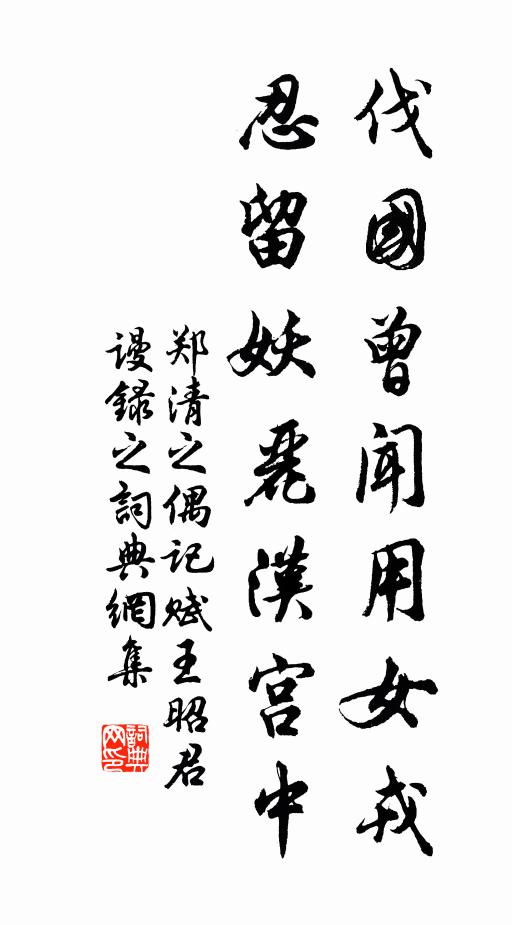 伐國曾聞用女戎
忍留妖麗漢宮中
郑清之偶记赋王昭君
谩録之詞典網集
詞典网印